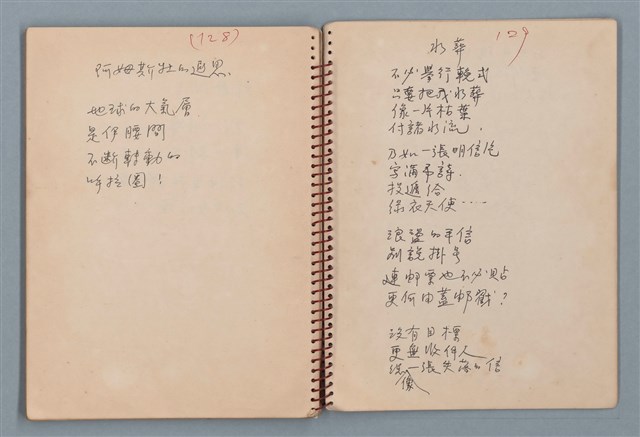 (128)
阿姆斯壯的遐思
地球的大氣層
是伊腰間
不斷轉動的
呼拉圈！
129
水葬
不必舉行輓式
只要把我水葬
像一片枯葉
付諸水流．
乃如一張明信片
寫滿吊詩．
投遞給
綠衣天使……
浪漫的平信
別說掛号
連邮票也不必貼
更何由蓋邮戳？
沒有目標
更無收件人
一張失落的信
像